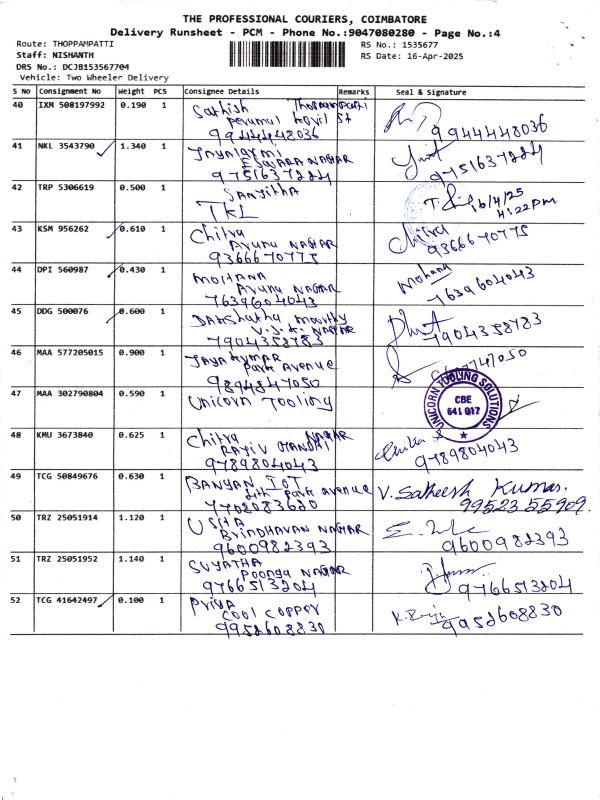 THE PROFESSIONAL COURIERS, COIMBATORE
Delivery Runsheet - PCM - Phone No.:9047080280 - Page No.:4
Route: THOPPAMPATTI
RS No.: 1535677
Staff: NISHANTH
RS Date: 16-Apr-2025
DRS No.: DCJB153567704
Vehicle: Two Wheeler Delivery
S No Consignment No Weight PCS Consignee Details Remarks Seal & Signature
40 IXM 508197992 0.190 1 Sathish
Perumal Kovil St
9944448036 9944448036
41 NKL 3543790 1.340 1 Jayalaxmi
Eswara Nagar
9751637224 9751637224
42 TRP 5306619 0.500 1 Sanjitha
TKL 16/4/25
4:22pm
43 KSM 956262 0.610 1 Chitra Chitra
Arunu Nagar
9366670775 9366670775
44 DPI 560987 0.430 1 Mohana Mohana
Arunu Nagar
7639604043 7639604043
45 DDG 500076 0.600 1 Dakshatha Moorthy
V.J.K. Nagar
7904358783 7904358783
46 MAA 577205015 0.900 1 Jayakumar
Park Avenue
9894847050
47 MAA 302790804 0.590 1 Unicorn Tooling
UNICORN TOOLING SOLUTIONS
CBE
641 017
48 KMU 3673840 0.625 1 Chitra
Rajiv Gandhi Nagar
9789804043 9789804043
49 TCG 50849676 0.630 1 Banyan IOT
4th Park Avenue V. Satheesh Kumar.
7702083620 9952355909.
50 TRZ 25051914 1.120 1 Usha
Brindhavan Nagar
9600982393 9600982393
51 TRZ 25051952 1.140 1 Sujatha
Poonga Nagar
9766513204 9766513204
52 TCG 41642497 0.100 1 Priya
Cool Copper
9952608830 9952608830